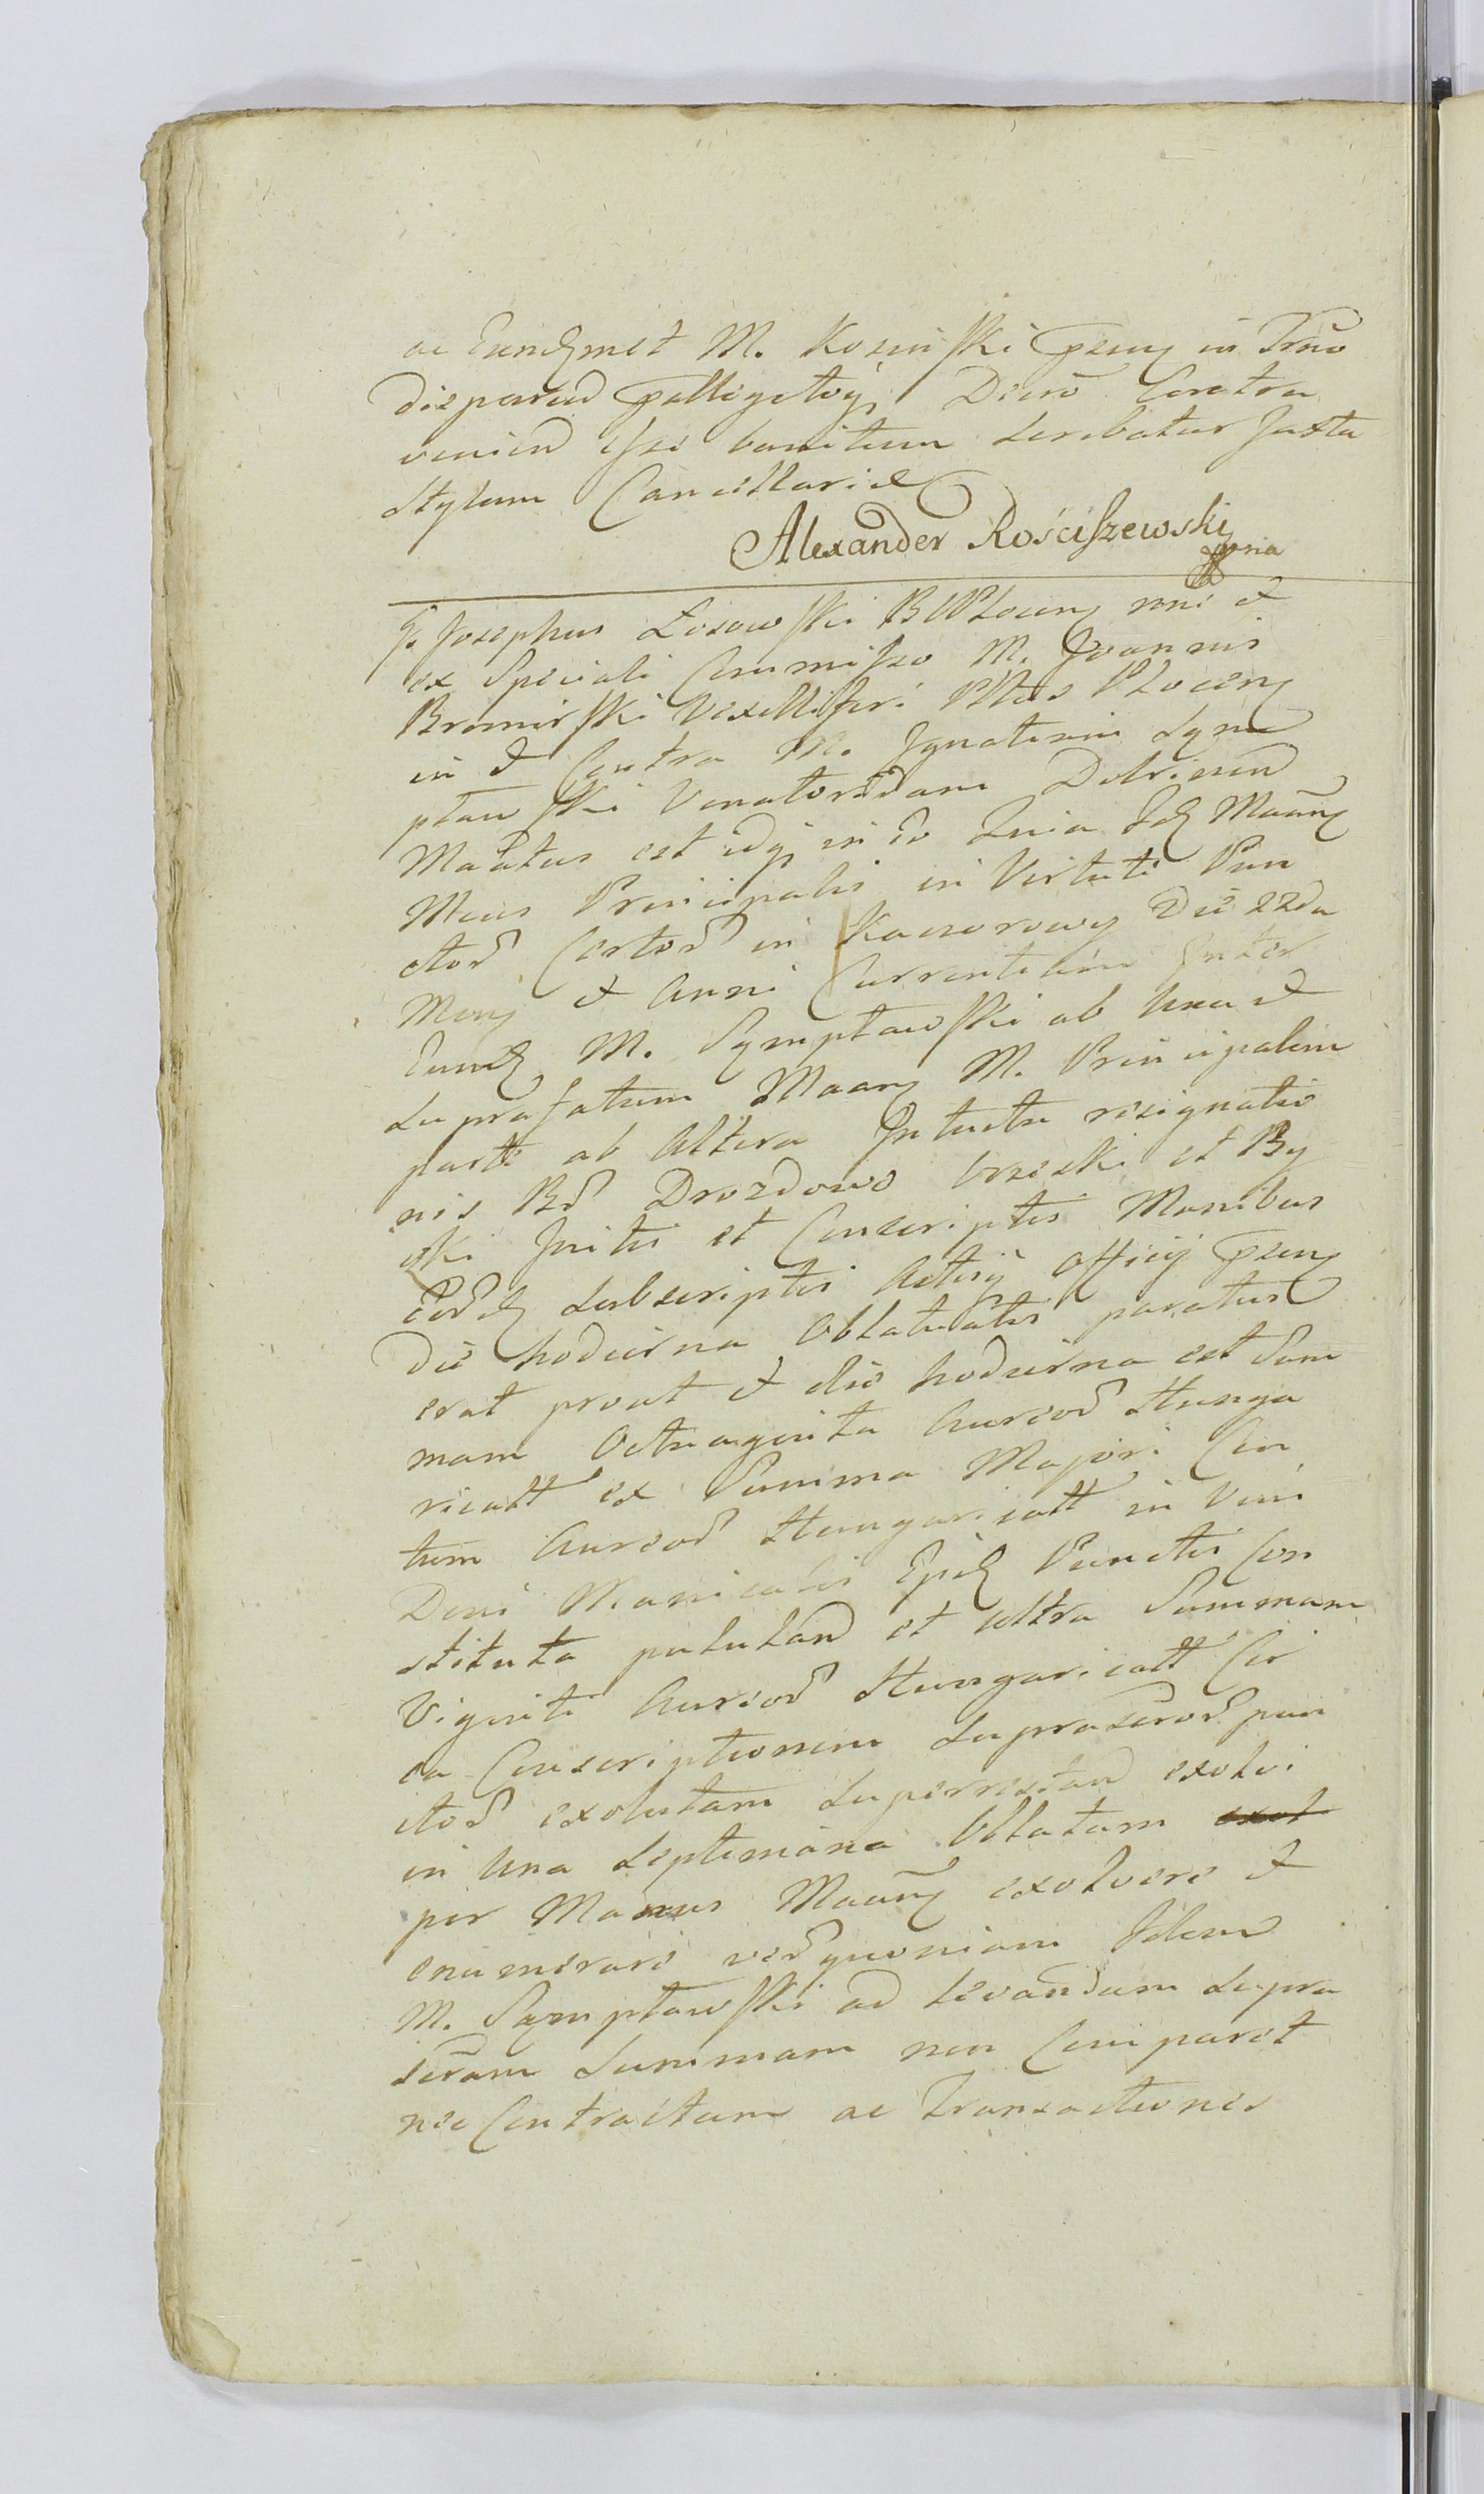 ac Eundmet M. Kozińſki in Trno
disparend Decro Contra
veniend eſse banitum Scribatur Juxta
Stylum Cancellariæ
Alexander Rościſzewski
mpria
Josephus Łosowſki BWPłocen mni et
ex Speciali Commiſso M. Joannis
Bromirſki Vexilliferi Pttus Płocen
in et Contra M. Ignatium Sym
ptawſki Venatoridam Dobrinen
Maãtus est idq in eo Quia Maan
Meus Principalis in Virtute Pun
ctor Certor in Kaczorowy Die 22da
Mens et Anni Currentium Inter
Eund M. Symptawſki ab Una et
Suprafatum Maan M. Principalem
parte ab Altera Intuitu resignatio
nis Br Drozdowo Orszeki et By
ski Initis et Conscriptis Manibus
Eord Subscriptis Actisq Officij
die hodierna Oblatuatis paratus
erat prout et die hodierna est Sum
mam Octuaginta Aureor Hunga
ricatt ex Summa Majori Cen
tum Aureor Hungaricatt in Vim
Deni Manicalis Punctis Con
stituta putatan et Ultra Summam
Viginti Aureor Hungaricatt Cir
ca Conscriptionem Suprascror pun
ctor exolutam Superrestan exolvi
in Una Septimana Oblatam exol
per Manus Maan exolvere et
enumerare ver quoniam Idem
M. Symptawſki ad Levandam Supra
scram Summam non Comparet
nec Contractum ac Transactiones